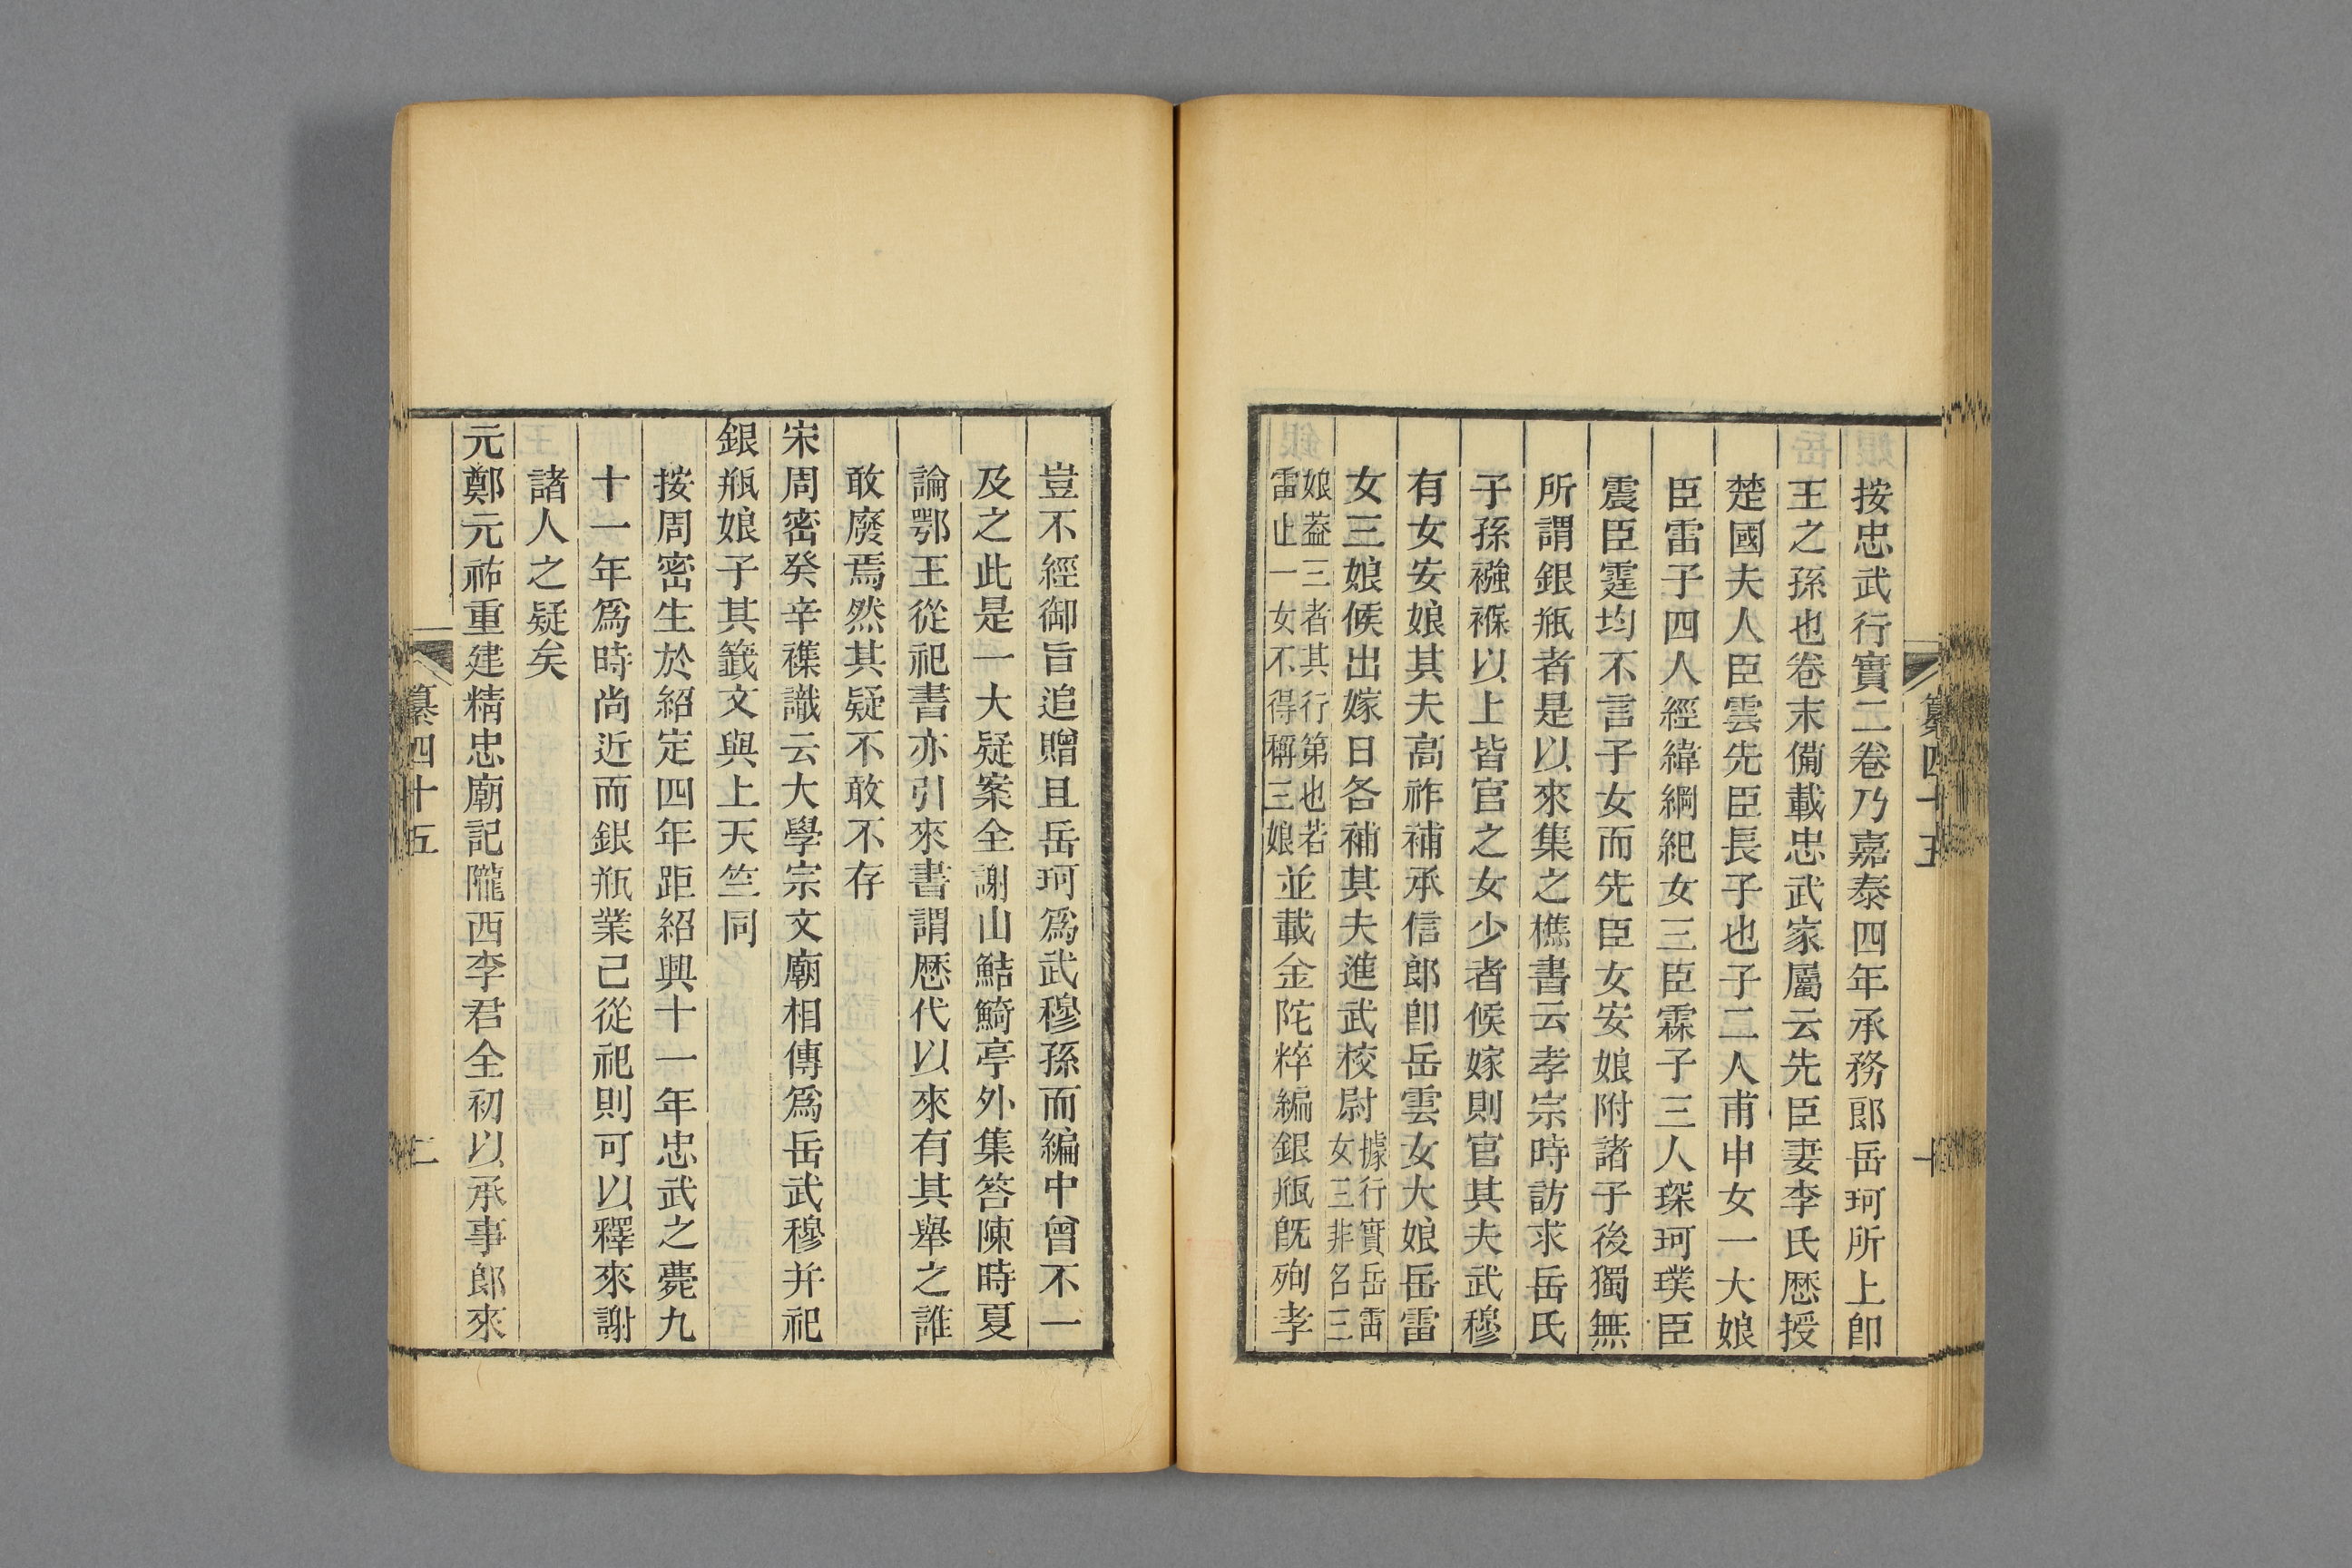 按忠武行實二卷乃嘉泰四年承務郎岳珂所上卽
王之孫也卷末備載忠武家屬云先臣妻李氏歷授
楚國夫人臣雲先臣長子也子二人甫申女一大娘
臣雷子四人經緯綱紀女三臣霖子三人琛珂璞臣
震臣霆均不言子女而先臣女安娘附諸子後獨無
所謂銀瓶者是以來集之樵書云孝宗時訪求岳氏
子孫襁褓以上皆官之女少者候嫁則官其夫武穆
有女安娘其夫高祚補承信郎卽岳雲女大娘岳雷
女三娘候出嫁日各補其夫進武校尉據行實岳雷女三非名三
娘葢三者其行第也若雷止一女不得稱三娘並載金陀粹編銀瓶旣殉孝
豈不經御旨追贈且岳珂爲武穆孫而編中曾不一
及之此是一大疑案全謝山鮚鮚亭外集答陳時夏
論鄂王從祀書亦引來書謂歷代以來有其舉之誰
敢廢焉然其疑不敢不存
宋周密癸辛襍識云大學宗文廟相傳爲岳武穆并祀
銀瓶娘子其籤文與上天竺同
按周密生於紹定四年距紹興十一年忠武之薨九
十一年爲時尚近而銀瓶業已從祀則可以釋來謝
諸人之疑矣
元鄭元祐重建精忠廟記隴西李君全初以承事郎來
纂四十五